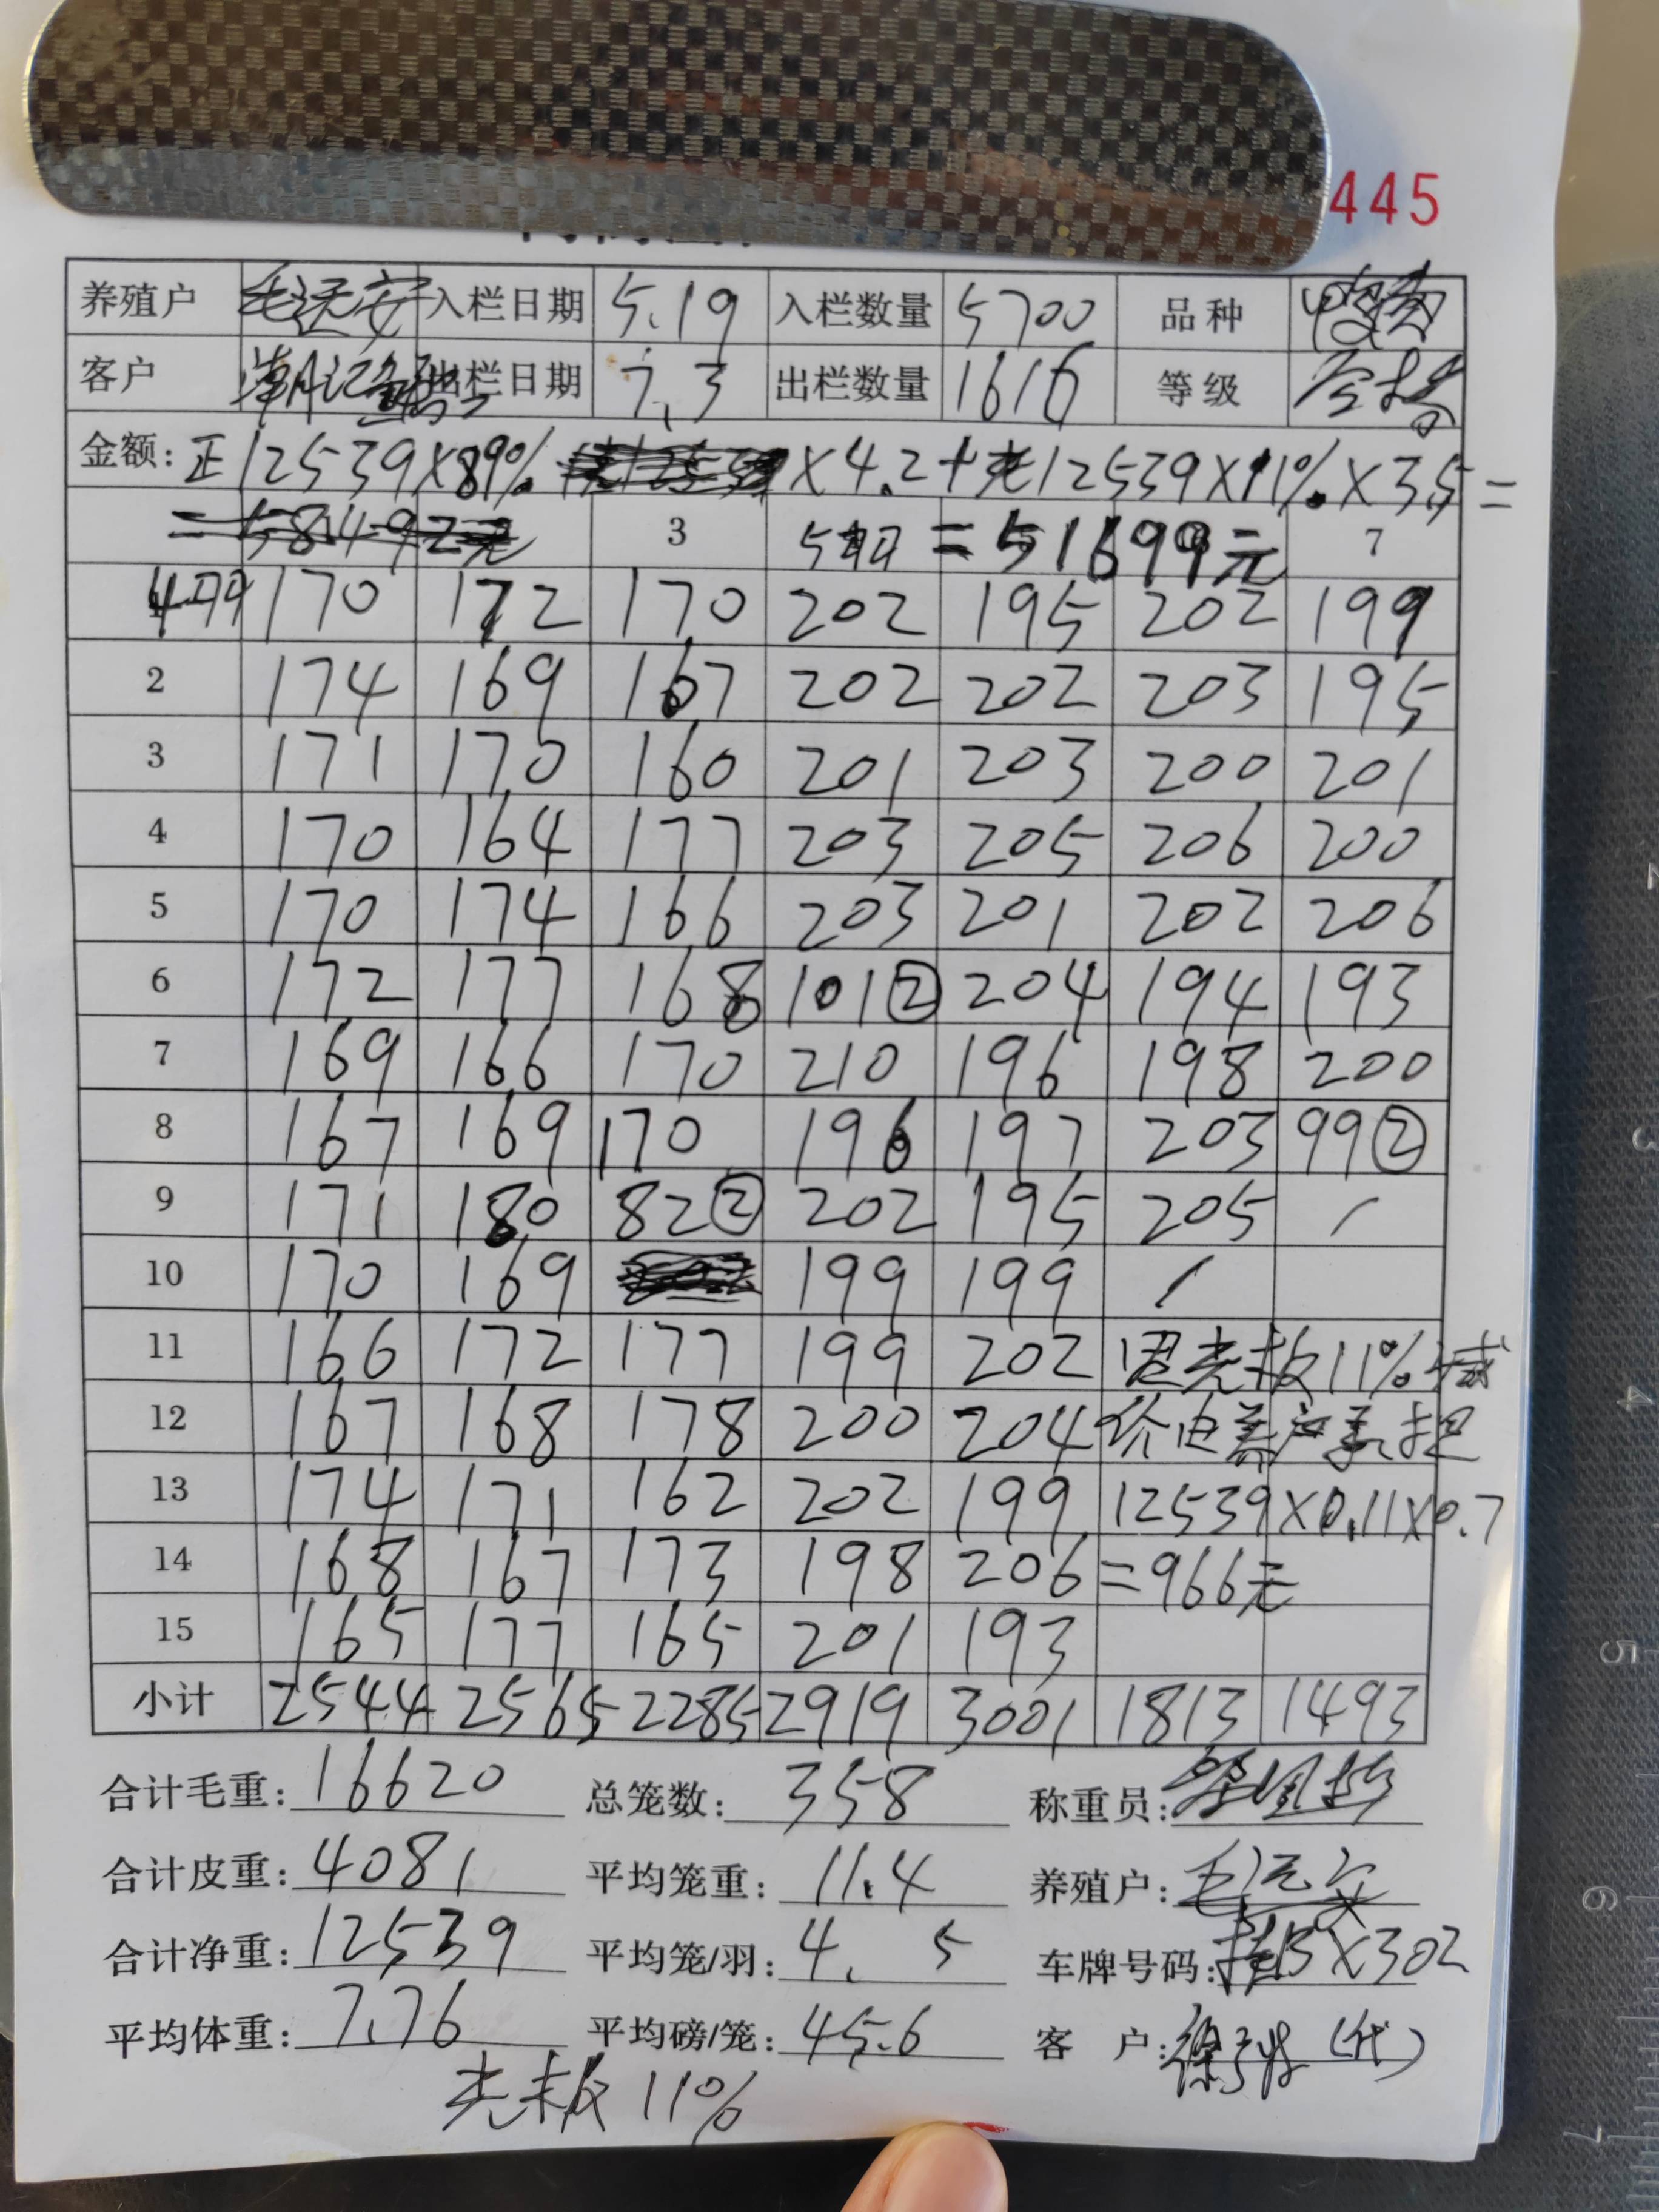 445
养殖户 毛远安 入栏日期 5.19 入栏数量 5700 品种
客户 潮记 出栏日期 7.3 出栏数量 1616 等级
金额: 正12539×89% ×4.2+光12539×11%×3.5=
=58149.2元 3 =51699元 7
170 172 170 202 195 202 199
2 174 169 167 202 202 203 195
3 171 170 160 201 203 200 201
4 170 164 177 203 205 206 200
5 170 174 166 203 201 202 206
6 172 177 168 101② 204 194 193
7 169 166 170 210 196 198 200
8 167 169 170 196 197 203 99②
9 171 180 82② 202 195 205 /
10 170 169 199 199 /
11 166 172 177 199 202 因光板11%减
12 167 168 178 200 204 价由养户承担
13 174 171 162 202 199 12539×0.11×0.7
14 168 167 173 198 206 =966元
15 165 177 165 201 193
小计 2544 2565 2285 2919 3001 1813 1493
合计毛重: 16620 总笼数: 358 称重员:
合计皮重: 4081 平均笼重: 11.4 养殖户: 毛远安
合计净重: 12539 平均笼/羽: 4. 5 车牌号码: BX302
平均体重: 7.76 平均磅/笼: 45.6 客 户: 徐 (代)
光板 11%